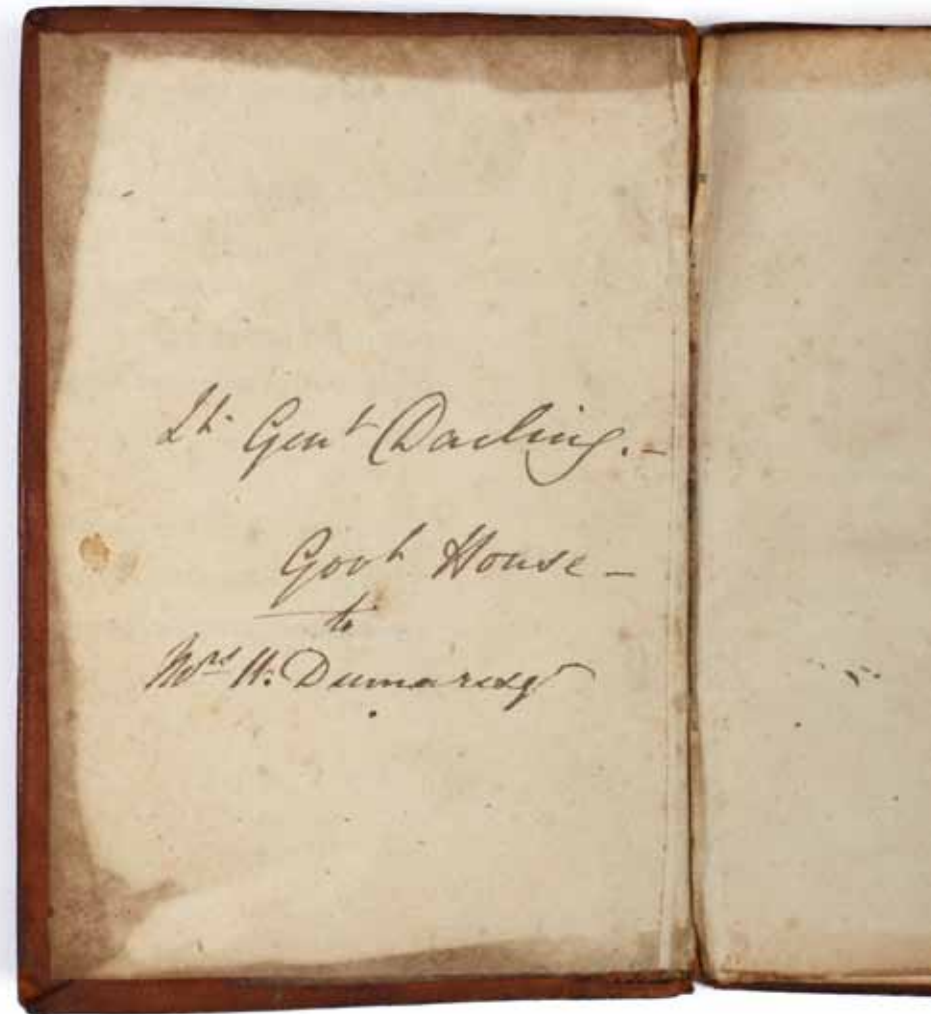 Lt. Genl Darling. –
Govt House –
to
Mrs H. Dumaresq